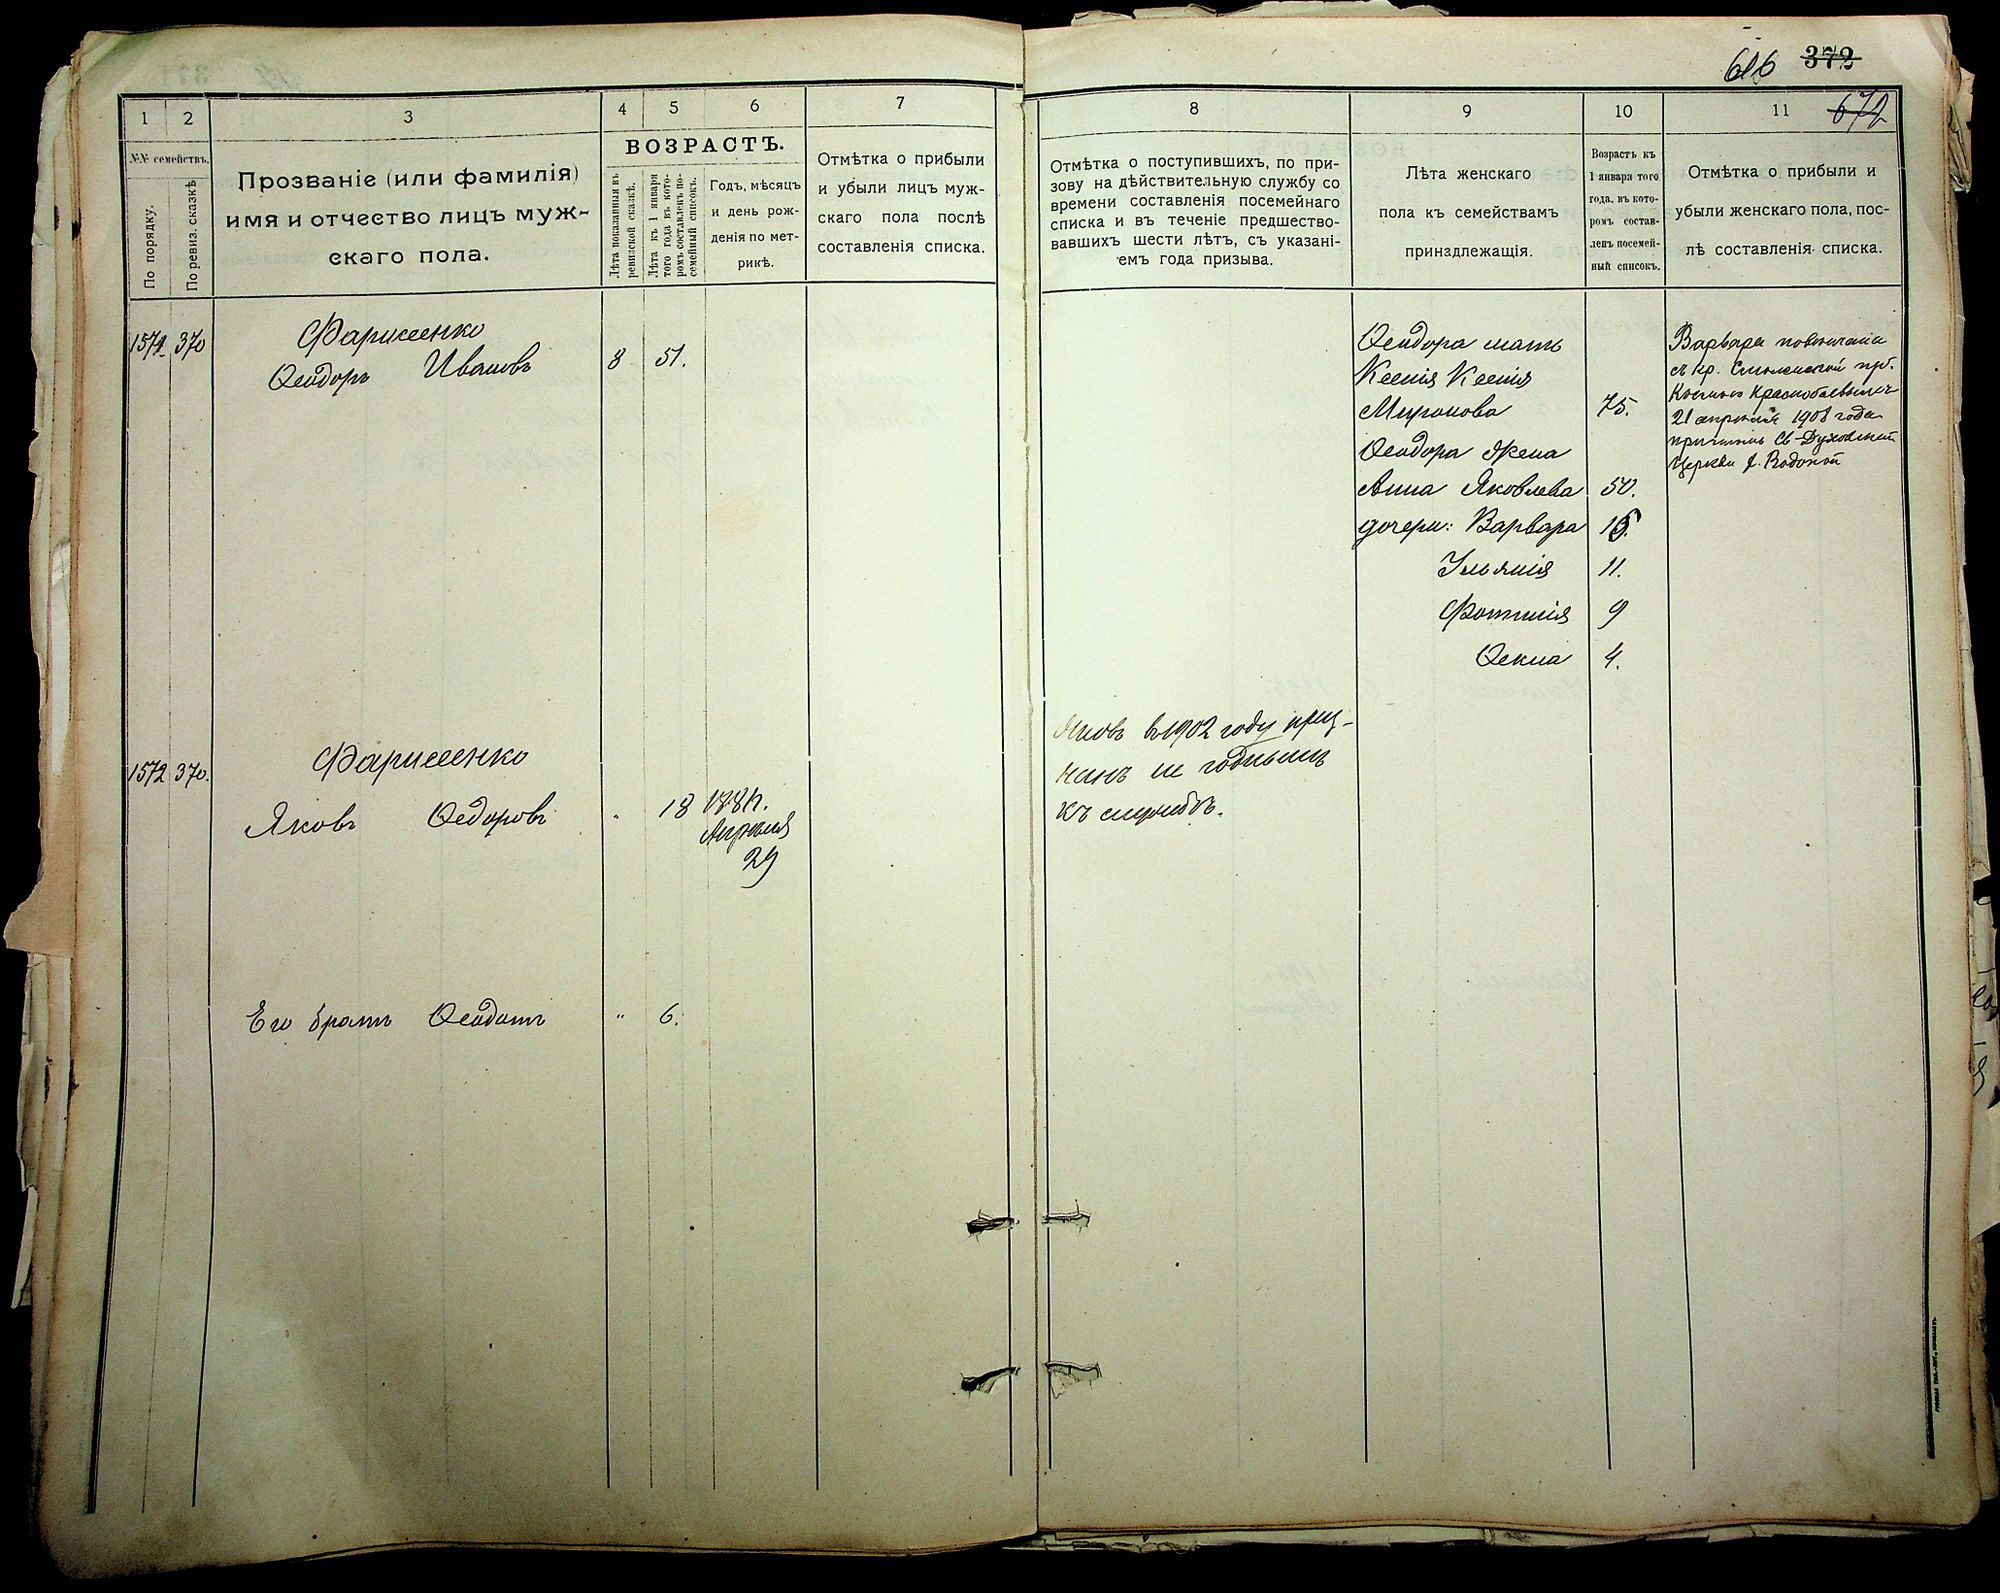 616 372
672
1 2 3 4 5 6 7
№№ семействъ.
По порядку.
По ревиз. сказкѣ
Прозваніе (или фамилія)
имя и отчество лицъ муж-
скаго пола.
ВОЗРАСТЪ.
Лѣта показанныя въ
ревизской сказкѣ.
Лѣта къ 1 января
того года въ кото-
ромъ составленъ по-
семейный списокъ.
Годъ, мѣсяцъ
и день рож-
денія по мет-
рикѣ.
Отмѣтка о прибыли
и убыли лицъ муж-
скаго пола послѣ
составленія списка.
1571 370 Фарисеенко
Ѳеодоръ Ивановъ 8 51.
1572 370. Фарисеенко
Яковъ Ѳедоровъ " 18 188 г.
Апрѣля
29
Его братъ Ѳеодотъ " 6.
8 9 10 11
Отмѣтка о поступившихъ, по при-
зову на дѣйствительную службу со
времени составленія посемейнаго
списка и въ теченіе предшество-
вавшихъ шести лѣтъ, съ указані-
емъ года призыва.
Лѣта женскаго
пола къ семействамъ
принадлежащія.
Возрастъ къ
1 января того
года, въ кото-
ромъ состав-
ленъ посемей-
ный списокъ.
Отмѣтка о прибыли и
убыли женскаго пола, пос-
лѣ составленія списка.
Ѳеодора мать
Ксенія Ксенія
Миронова 75.
Ѳеодора жена
Анна Яковлева 50.
дочери: Варвара 15.
Ульянія 11.
Фотинія 9
Ѳекла 4.
Варвара повѣнчана
съ кр. Смоленской губ.
Краснобаевымъ
21 апрѣля 1908 года
причтомъ Св-Духовской
Церкви
Яковъ въ 1902 году приз-
нанъ не годнымъ
къ службѣ.